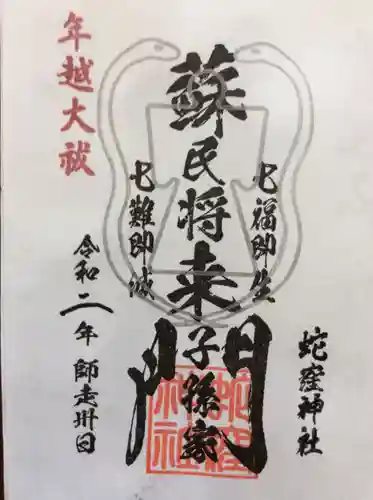 蛇窪神社
七福即生
蘇民将来子孫家門
七難即滅
年越大祓
令和二年師走卅日
蛇窪神社